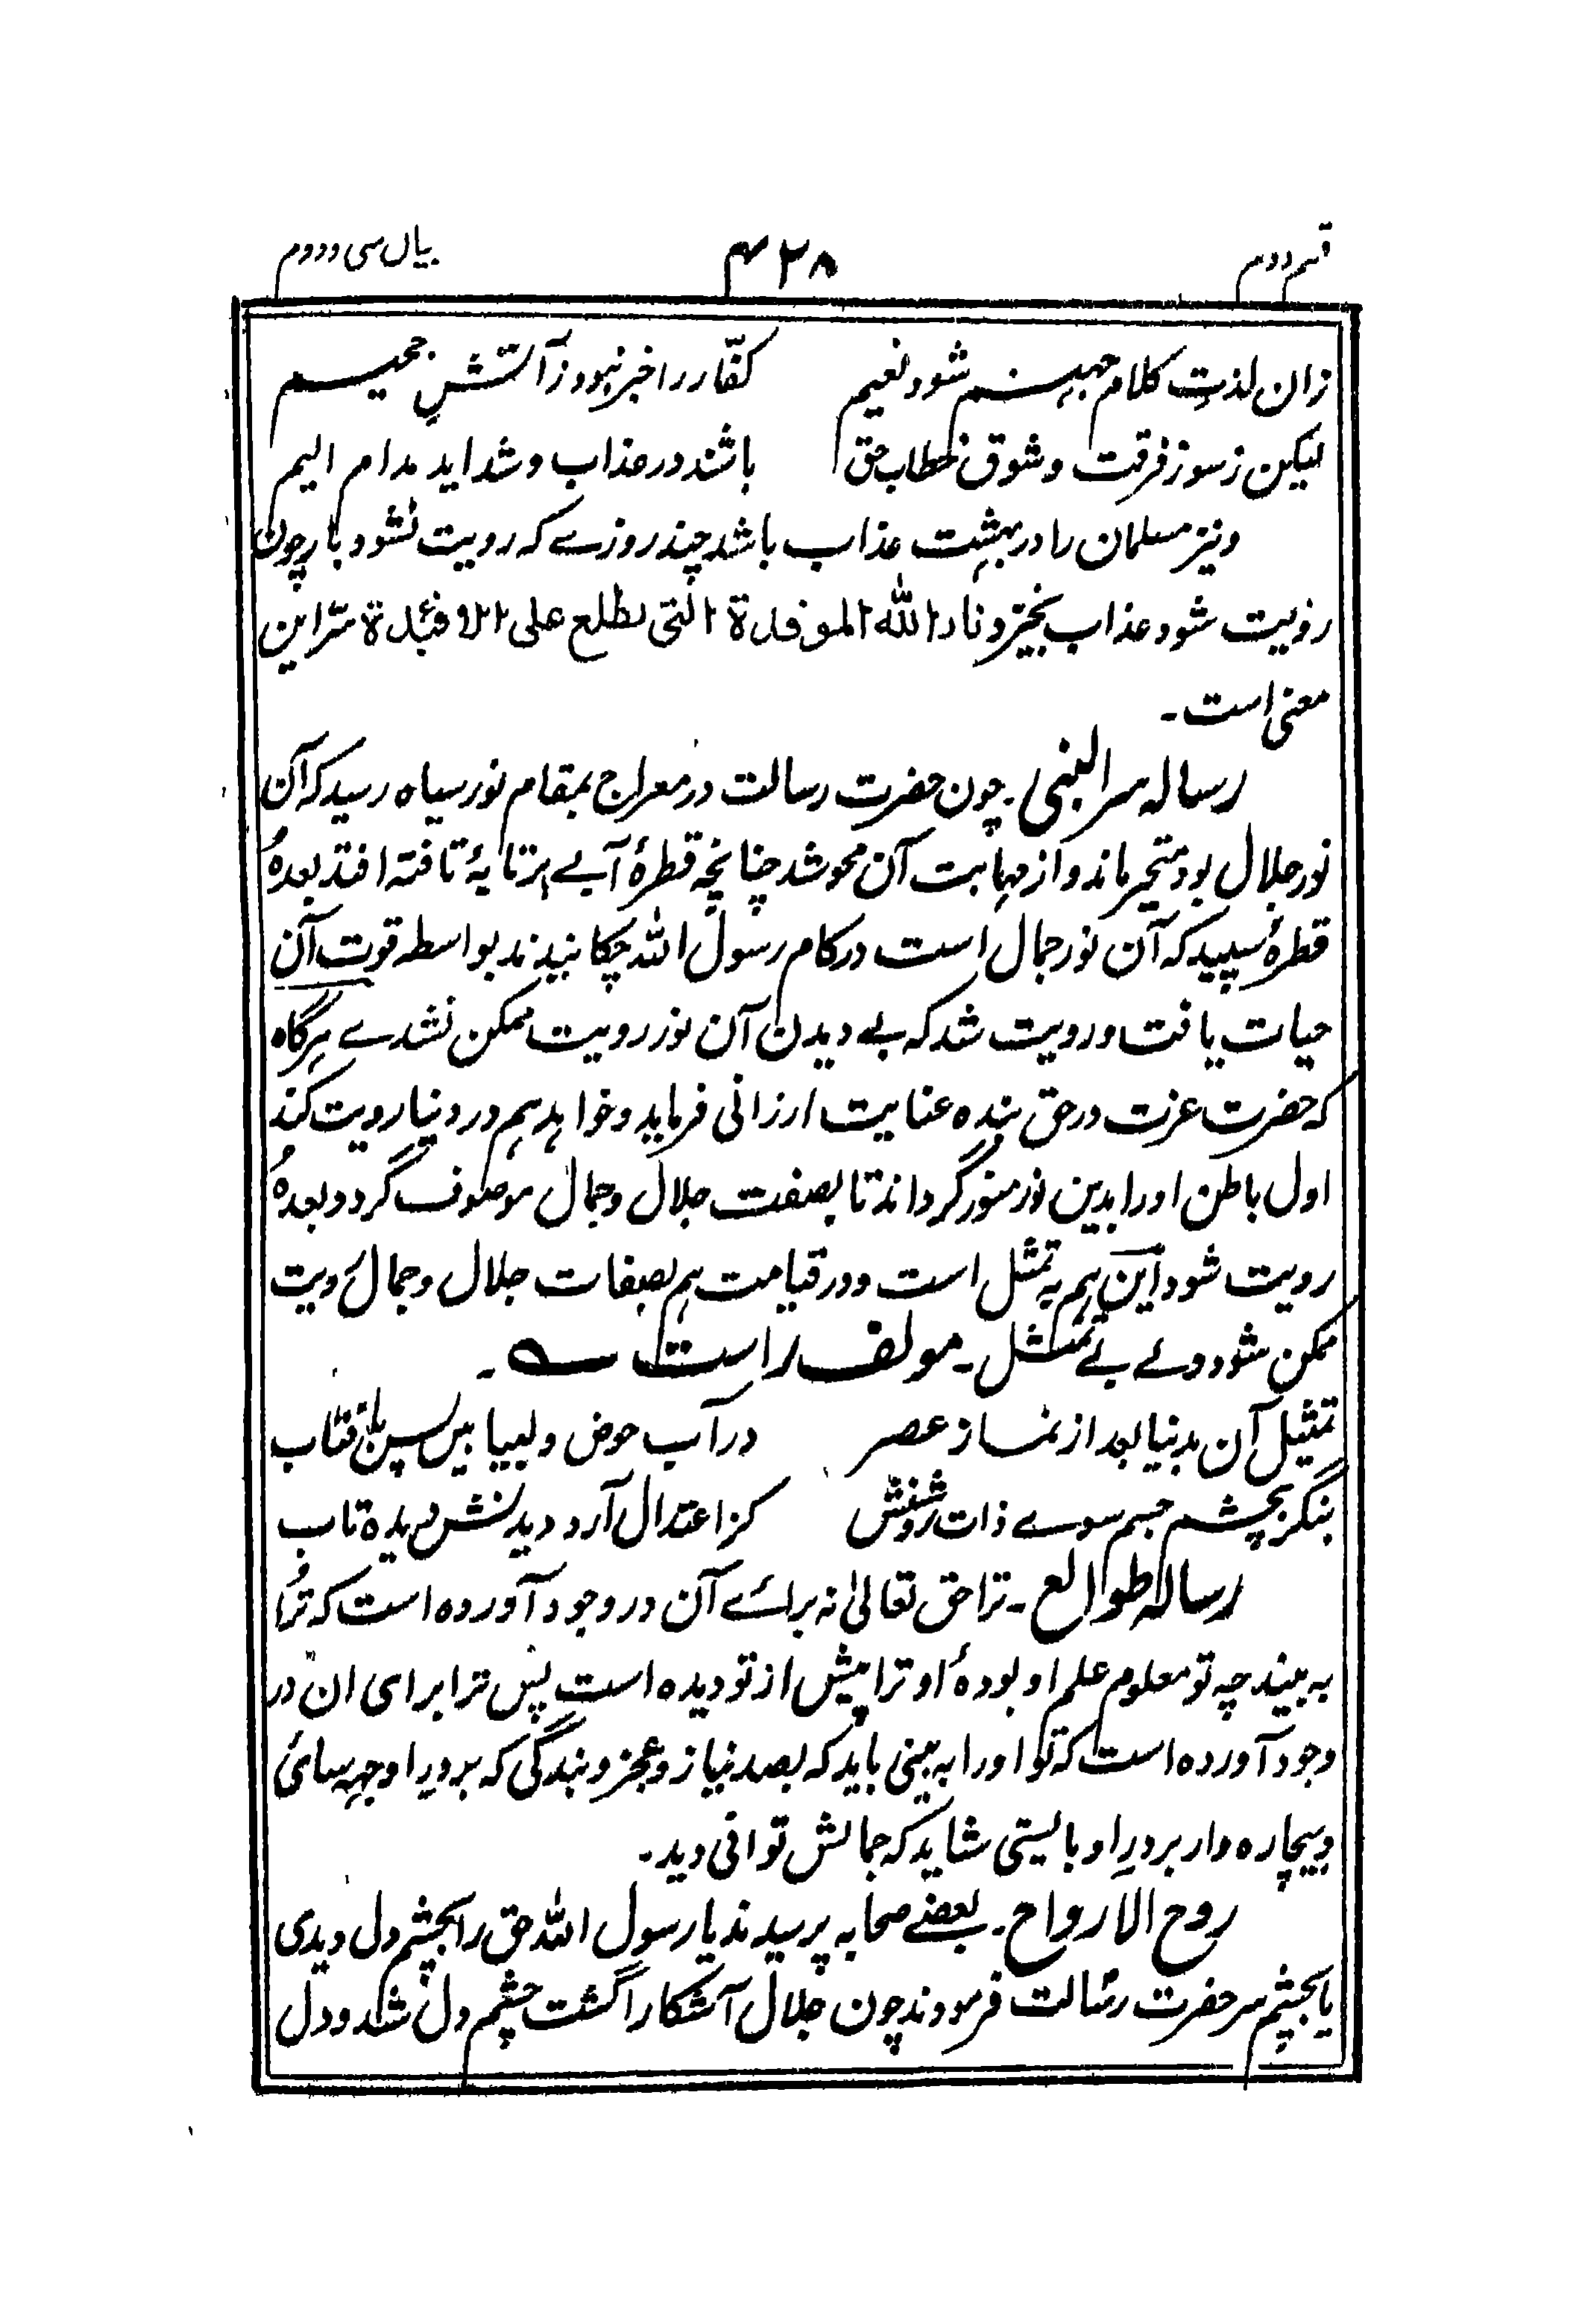 قسم دوم ۴۲۸ بیان سی و دوم
زان لذتِ کلام جہنم شود نعیم کفّار را خبر نبود ز آتشِ جحیم
لیکن ز سوز فرقت و شوق خطاب حق باشند در عذاب و شداید مدام الیم
و نیز مسلمان را در بہشت عذاب باشد چند روزے کہ رویت نشود باز چون
رؤیت شود عذاب بخیزد نار الله الموقدة التی تطلع علی الافئدة سرّ این
معنی است۔
رسالہ سر النبی۔ چون حضرت رسالت در معراج بمقام نور سیاہ رسید کہ آن
نور جلال بود متحیر ماند و از مہابت آن محو شد چنانچہ قطرۂ آبے بر تابۂ تافتہ افتد بعدہٗ
قطرۂ سپید کہ آن نور جمال است در کام رسول اللہ چکانیدند بواسطہ قوت آن
حیات یافت و رویت شد کہ بے دیدن آن نور رویت ممکن نشدے ہرگاہ
کہ حضرت عزت در حق بندہ عنایت ارزانی فرماید و خواہد ہم در دنیا رویت کند
اول باطن او را بدین نور منور گرداند تا بصفت جلال و جمال موصوف گردد و بعدہٗ
رویت شود این ہم بہ تمثل است و در قیامت ہم بصفات جلال و جمال رویت
ممکن شود ولے بے تمثل۔ مولف راست ؎۔
تمثیل آن بدنیا بعد از نماز عصر در آب حوض و لبیا بین پس آفتاب
بنگر بچشم جسم سوے ذات روشنش کز اعتدال آرد دیدنش دیدہ تاب
رسالہ طوالع۔ ترا حق تعالیٰ نہ برائے آن در وجود آوردہ است کہ ترا
بہ بیند چہ تو معلوم علم او بودۂ او ترا پیش از تو دیدہ است پس ترا برای ان در
وجود آوردہ است کہ تو او را بہ بینی باید کہ بصد نیاز و عجز و بندگی کہ بر درِ او جبہہ سائی
و بیچارہ وار بر درِ او بایستی شاید کہ جمالش توانی دید۔
روح الارواح۔ بعضے صحابہ پرسیدند یا رسول اللہ حق را بچشم دل دیدی
یا بچشم سر حضرت رسالت فرمودند چون جلال آشکارا گشت چشم دل شد و دل